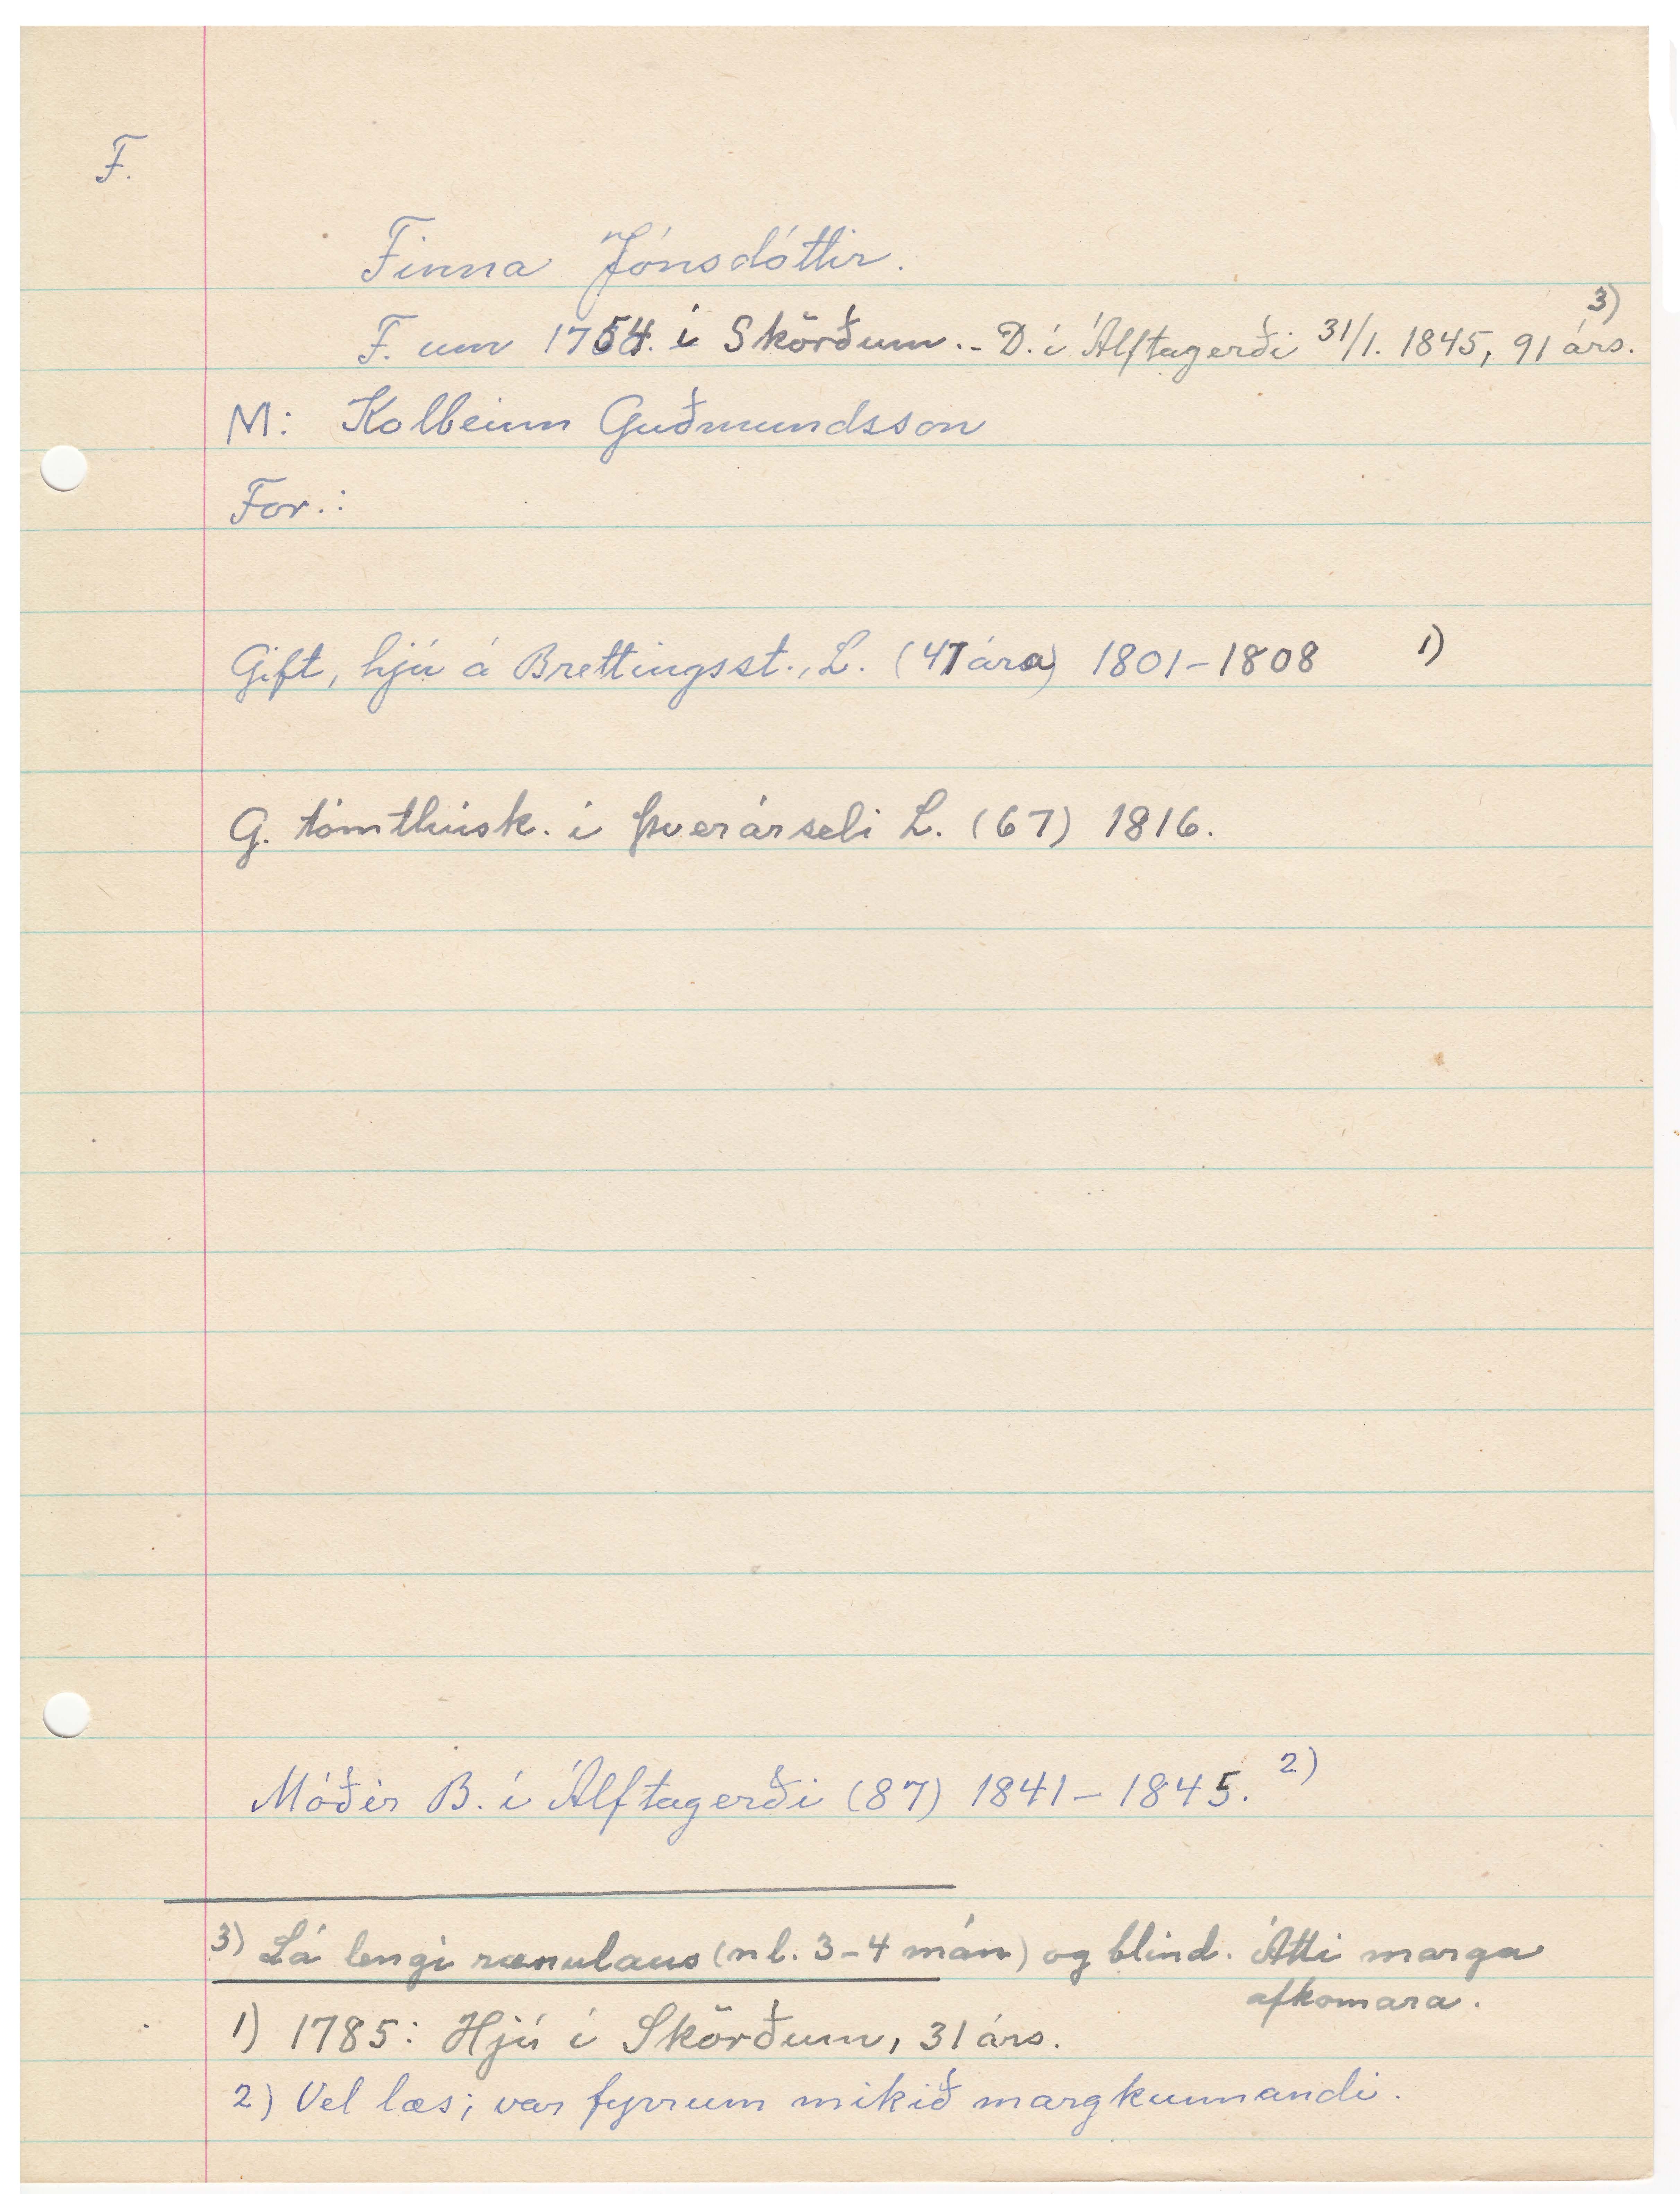 F.
Finna Jónsdóttir.
F. um 1754. í Skörðum. - D. í Álftagerði 31/1. 1845, 91 árs. 3)
M: Kolbeinn Guðmundsson
For.:
Gift, hjú á Brettingsst., L. (47 ára) 1801-1808 1)
G. tómthúsk. í Þverárseli L. (67) 1816.
Móðir B. í Álftagerði (87) 1841-1845. 2)
3) Lá lengi rænulaus (nl. 3-4 mán) og blind. Átti marga
afkomara.
1) 1785: Hjú í Skörðum, 31 árs.
2) Vel læs; var fyrrum mikið margkunnandi.